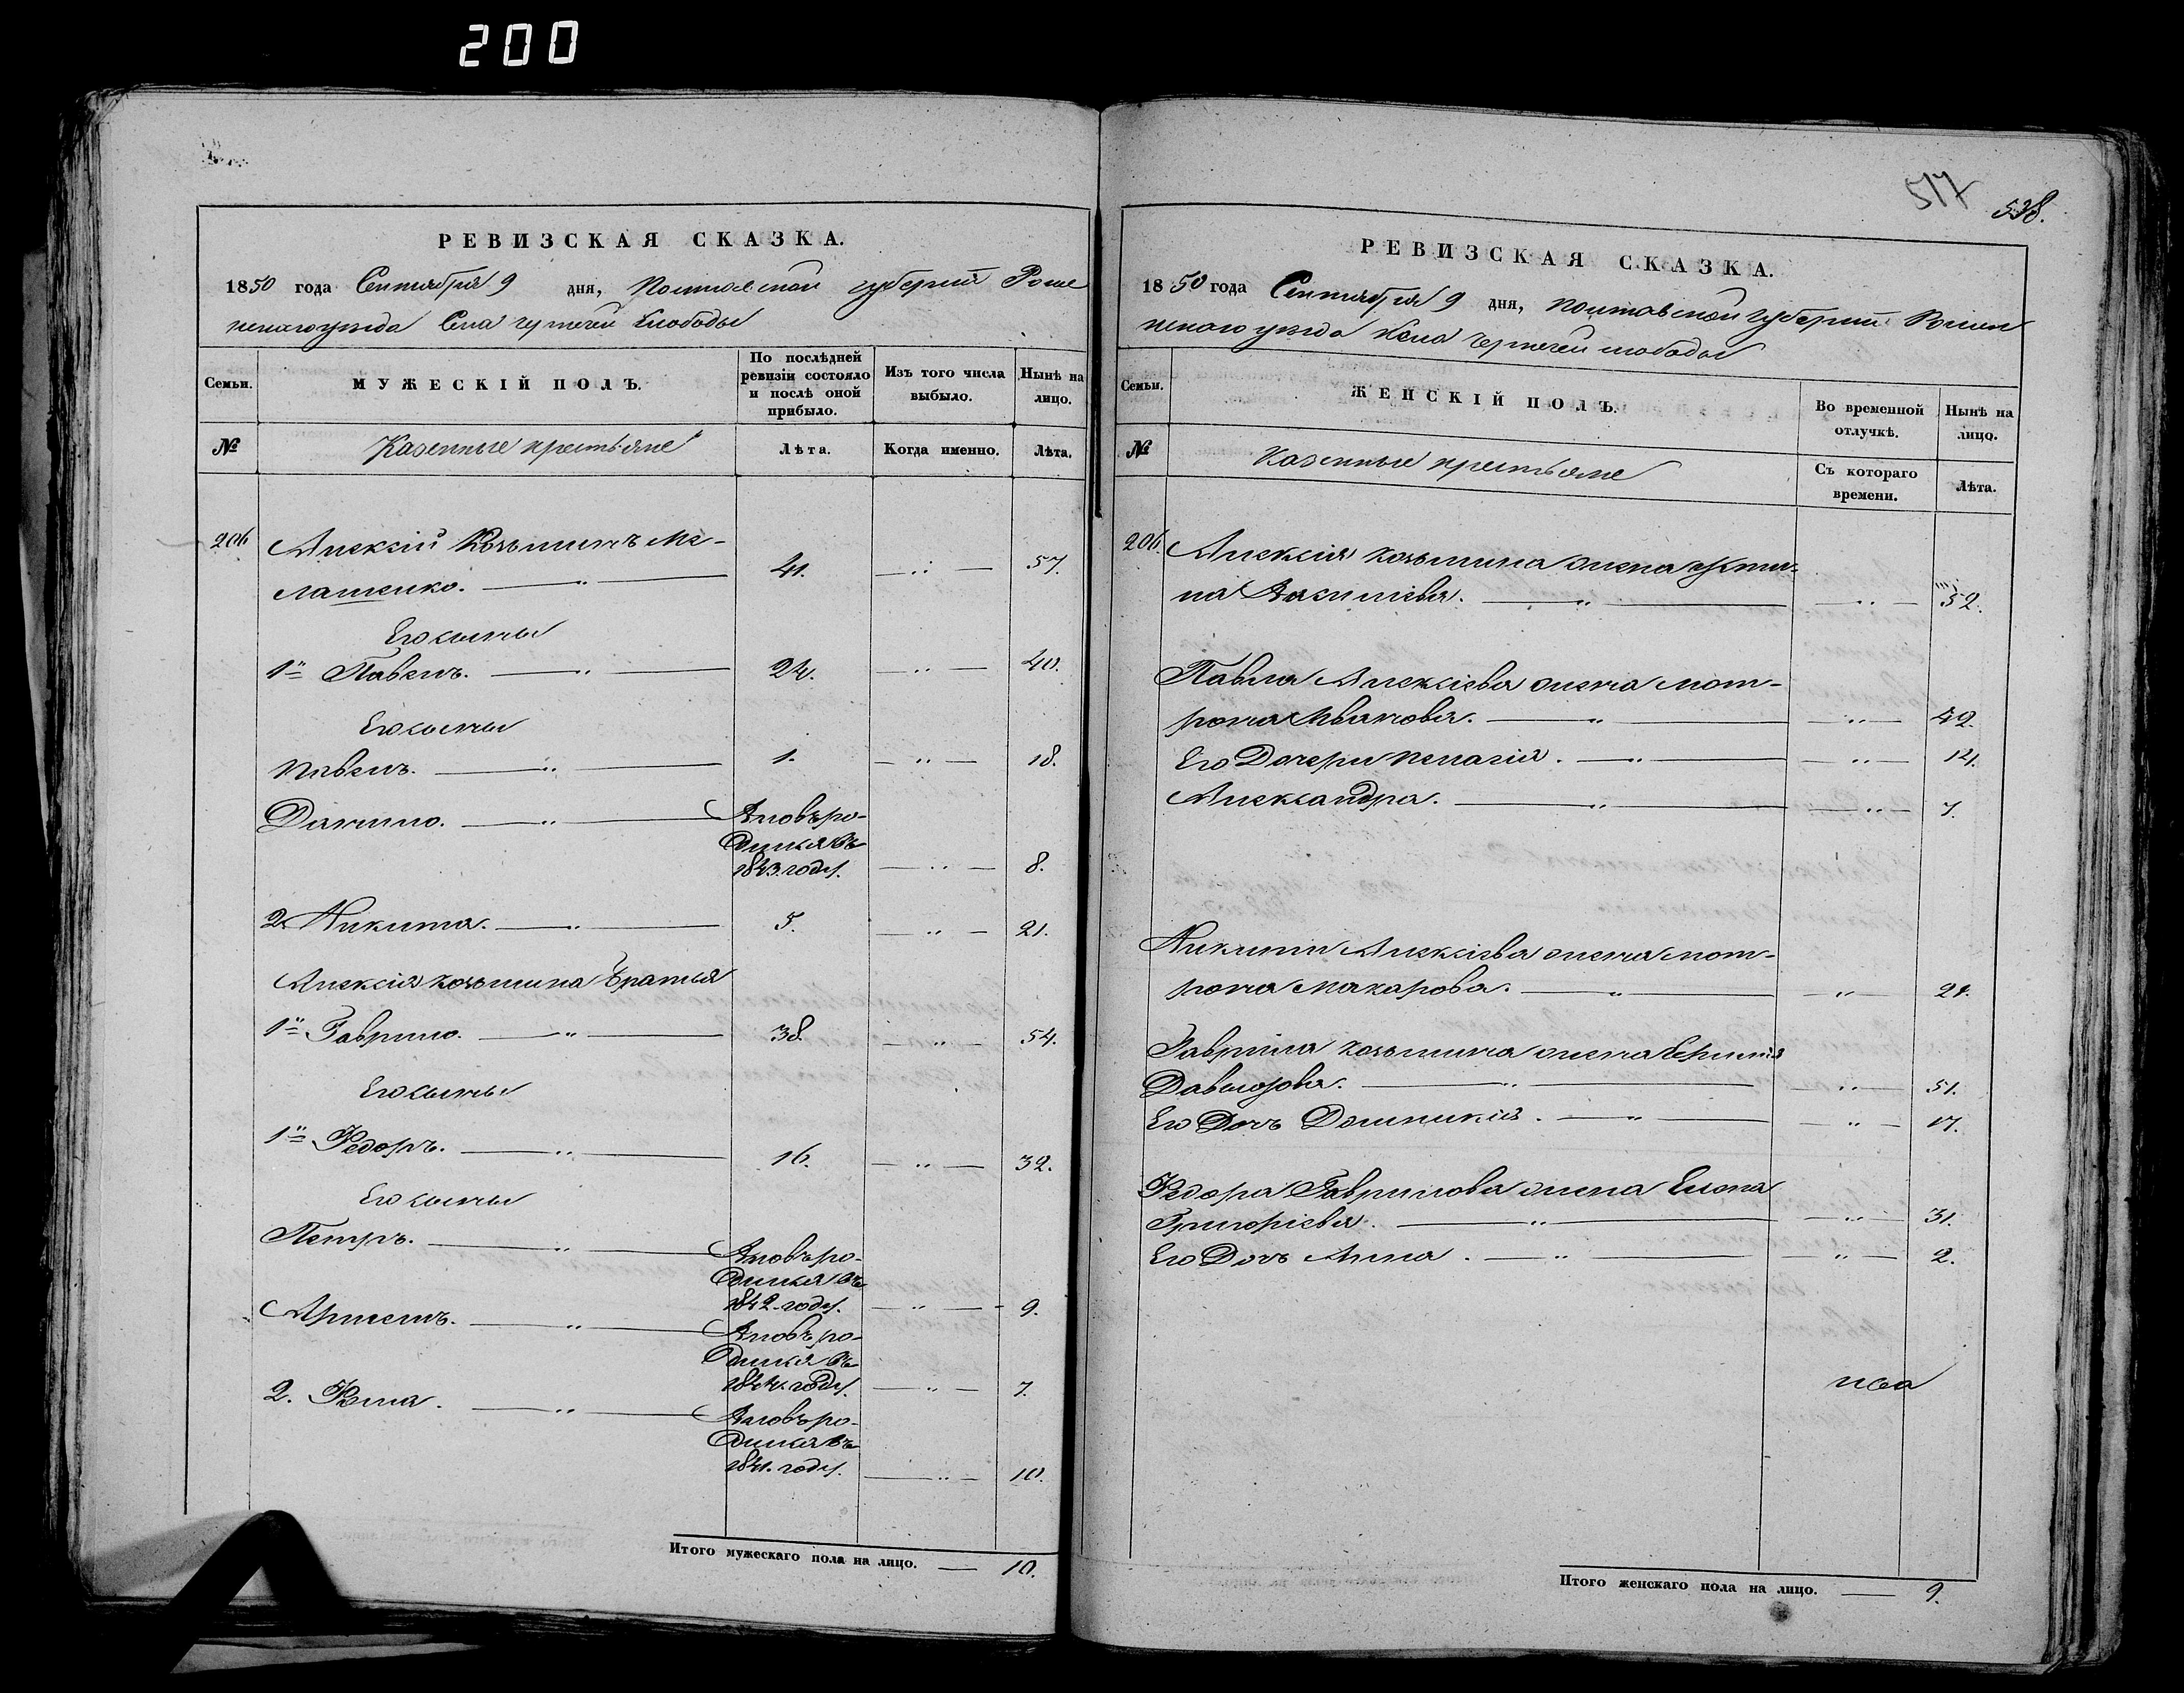 200
РЕВИЗСКАЯ СКАЗКА.
1850 года Сентября 9 дня, Полтавской губерніи Роме
нскаго уезда Села Чернечей Слободы
Семьи.
МУЖЕСКІЙ ПОЛЪ.
По послѣдней ревизіи состояло и послѣ оной прибыло.
Изъ того числа выбыло.
Нынѣ на лицо.
№
Казенные крестьяне
Лѣта.
Когда именно.
Лѣта.
206 Алексій Козьминъ Ме-
лашенко. 41. 57.
Его сыны
1й Павелъ. 24. 40.
Его сыны
Павелъ. 1. 18.
Данило. Вновь ро-
дился въ
1843. году. 8.
2. Никита. 5. 21.
Алексія Козьмина братья
1й Гаврило. 38. 54.
Его сыны
1й Федоръ. 16. 32.
Его сыны
Петръ. Вновь ро-
дился въ
1842. году. 9.
Артемъ. Вновь ро-
дился въ
1844. году. 7.
2. Фома. Вновь ро-
дился въ
1841. году. 10.
Итого мужескаго пола на лицо. 10.
517 538.
РЕВИЗСКАЯ СКАЗКА.
1850 года Сентября 9 дня, Полтавской губерніи Ромен
нскаго уезда Села Чернечей слободы
Семьи.
ЖЕНСКІЙ ПОЛЪ.
Во временной отлучкѣ.
Нынѣ на лицо.
№
Казенные крестьяне
Съ котораго времени.
Лѣта.
206. Алексія Козьмина жена
на Васильева. 52.
Павла Алексіева жена Мот-
рона Иванова. 42.
Его Дочери Пелагія. 14.
Александра. 7.
Никиты Алексіева жена Мот-
рона Макарова. 21.
Гаврила Козьмина жена
Давыдова. 51.
Его Дочь Домникія. 17.
Федора Гаврилова жена Елена
Григоріева. 31.
Его Дочь Анна. 2.
Итого женскаго пола на лицо. 9.